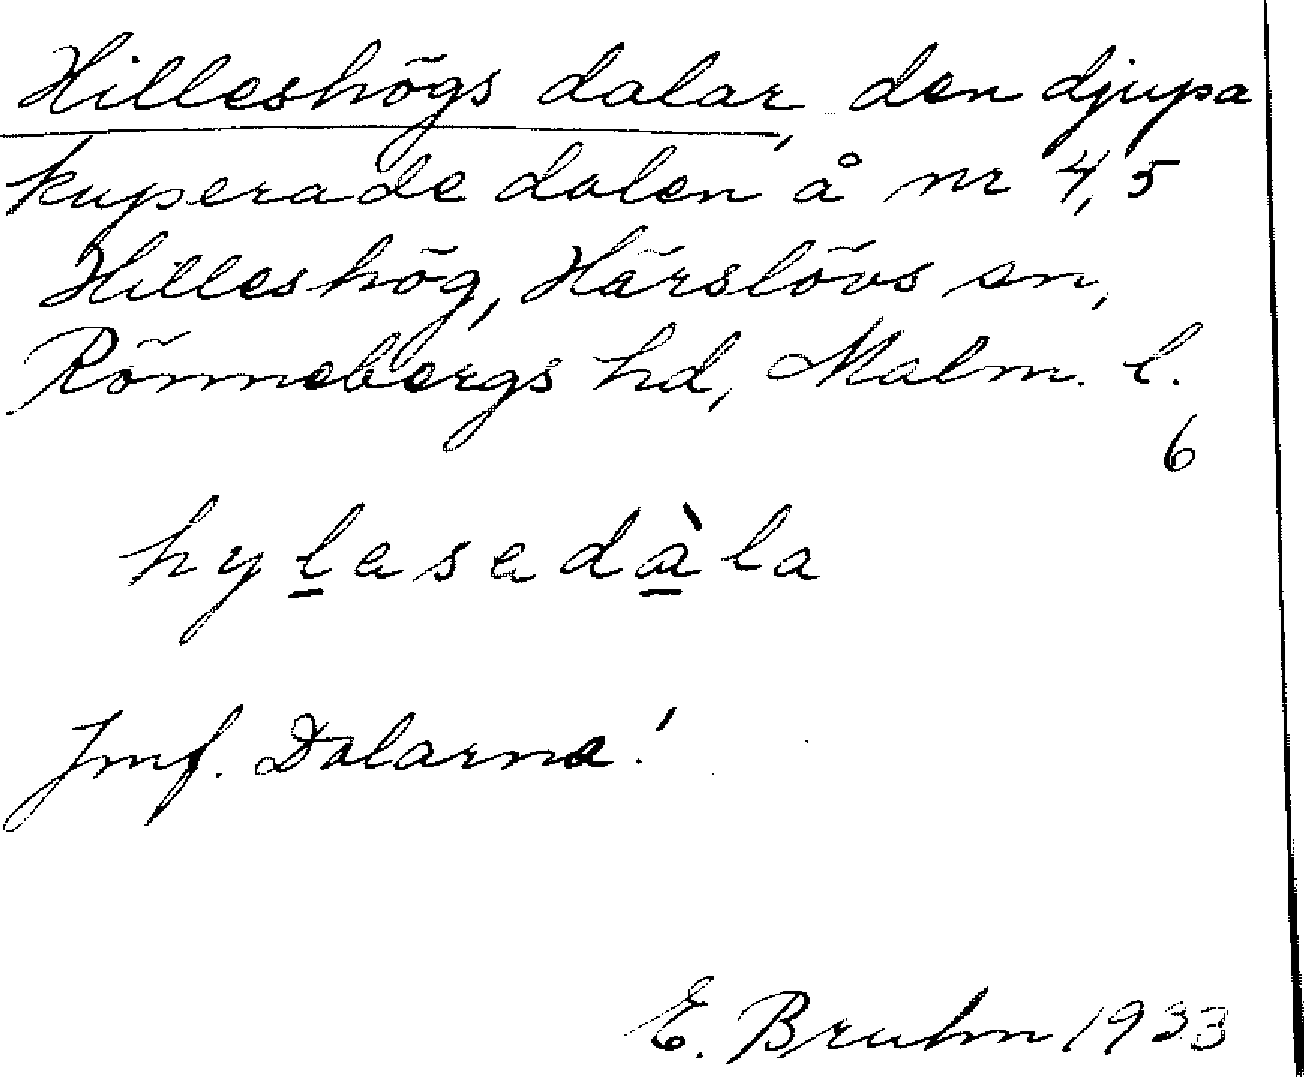 Hilleshögs dalar, den djupa
kuperade dalen å nr 4,5
Hilleshög, Härslövs sn,
Rönnebergs hd, Malm. l.
6
hylesedàla
Jmf. Dalarna!
E. Bruhn 1933